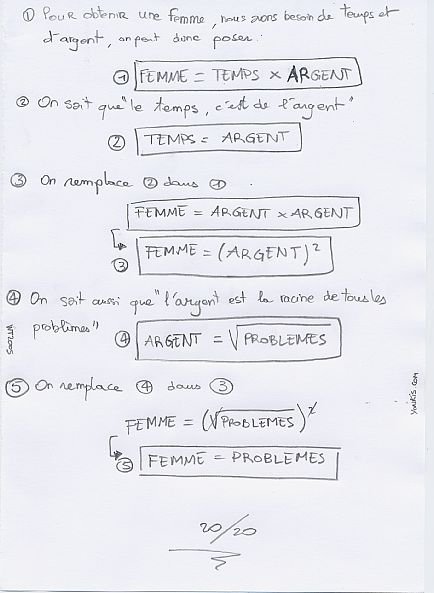 ① Pour obtenir une femme, nous avons besoin de temps et
d'argent, on peut donc poser :
① FEMME = TEMPS x ARGENT
② On sait que "le temps, c'est de l'argent"
② TEMPS = ARGENT
③ On remplace ② dans ①
FEMME = ARGENT x ARGENT
③ FEMME = (ARGENT)²
④ On sait aussi que "l'argent est la racine de tous les
problèmes"
④ ARGENT = √PROBLEMES
⑤ On remplace ④ dans ③
FEMME = (√PROBLEMES)²
⑤ FEMME = PROBLEMES
20/20